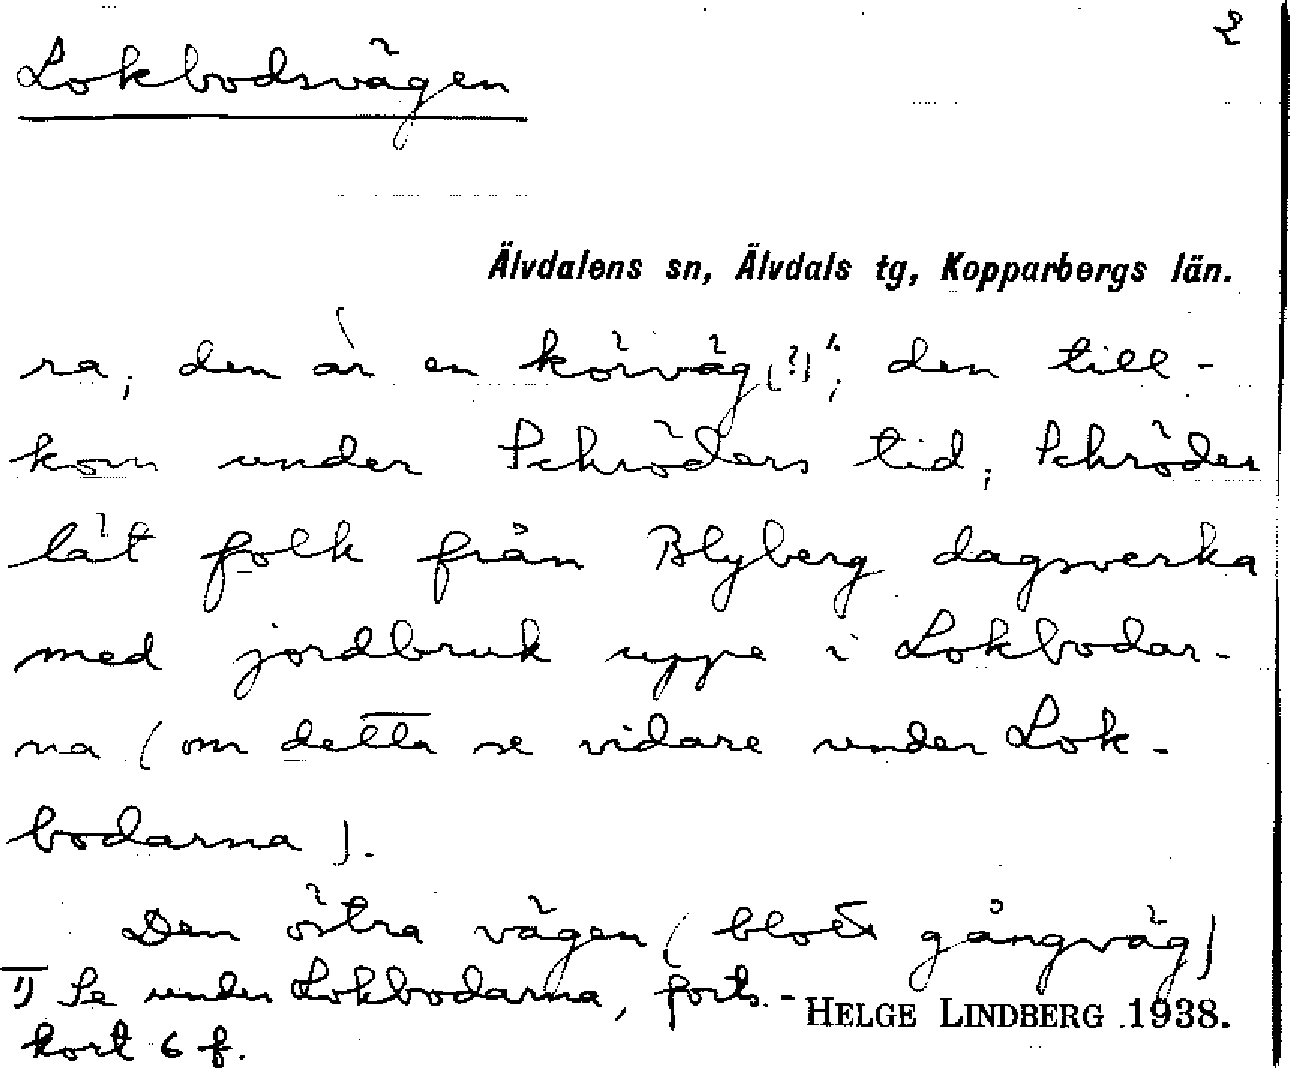 2
Lokbodsvägen
Älvdalens sn, Älvdals tg, Kopparbergs län.
ra, den är en körväg (?)¹⁾; den till-
kom under Schröders tid, Schröder
lät folk från Blyberg dagsverka
med jordbruk uppe i Lokbodar-
na (om detta se vidare under Lok-
bodarna).
Den östra vägen (blott gångväg)
¹⁾ Se under Lokbodarna, forts.-
kort 6 f.
HELGE LINDBERG 1938.